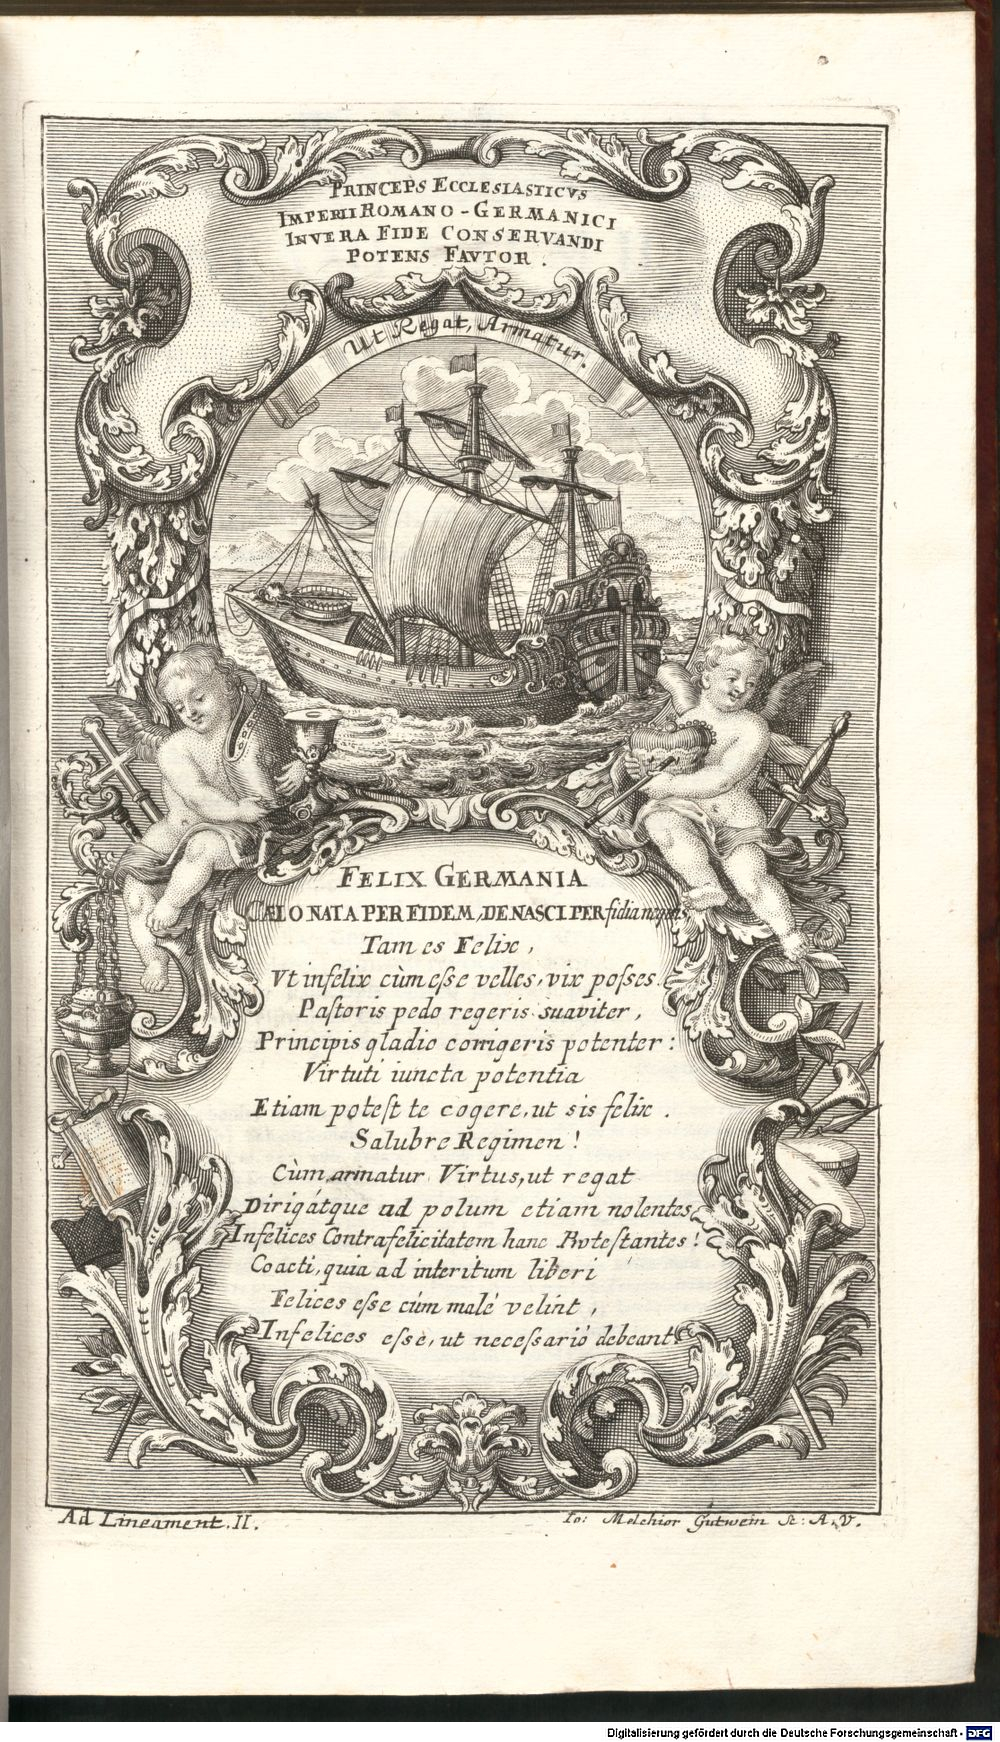 PRINCEPS ECCLESIASTICVS
IMPERII ROMANO-GERMANICI
IN VERA FIDE CONSERVANDI
POTENS FAVTOR.
Ut Regat, Armatur.
FELIX GERMANIA
CÆLO NATA PER FIDEM, DENASCI PERfidia nequis,
Tam es Felix,
Vt infelix cùm eſse velles, vix poſses.
Paſtoris pedo regeris suaviter,
Principis gladio corrigeris potenter:
Virtuti iuncta potentia
Etiam poteſt te cogere, ut sis felix.
Salubre Regimen!
Cùm armatur Virtus, ut regat
Dirigátque ad polum etiam nolentes
Infelices Contra felicitatem hanc Proteſtantes!
Coacti, quia ad interitum liberi
Felices eſse cùm malè velint,
Infelices eſse, ut neceſsariò debeant.
Ad Lineament. II.
Io: Melchior Gutwein Sc: A. V.
Digitalisierung gefördert durch die Deutsche Forschungsgemeinschaft - DFG